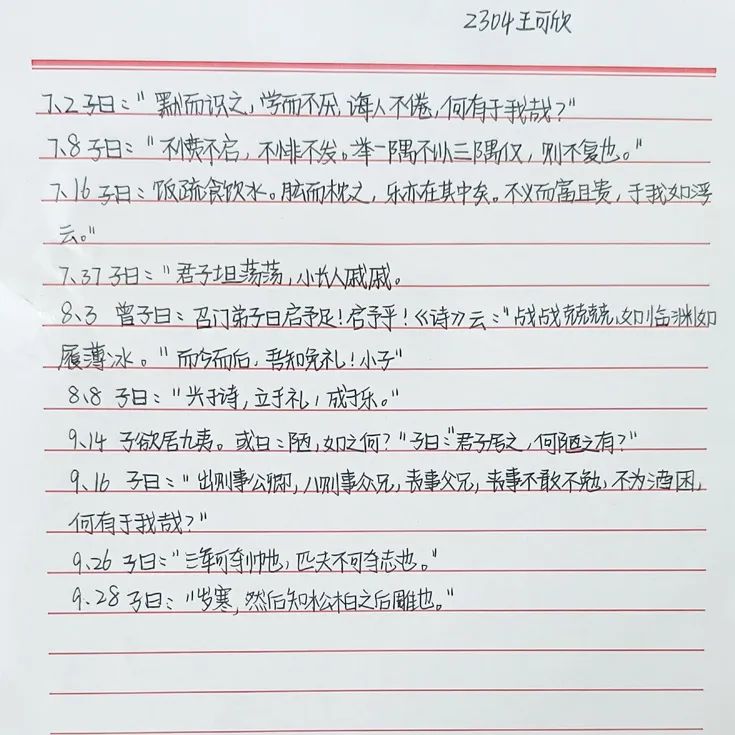 2304王可欣
7、2 子曰："默而识之，学而不厌，诲人不倦，何有于我哉？"
7、8 子曰："不愤不启，不悱不发。举一隅不以三隅仅，则不复也。"
7、16 子曰：饭疏食饮水。肱而枕之，乐亦在其中矣。不义而富且贵，于我如浮
云。"
7、37 子曰："君子坦荡荡，小长人戚戚。
8、3 曾子曰：召门弟子曰启予足！启予乎！《诗》云："战战兢兢，如临渊如
履薄冰。"而今而后，吾知免礼！小子"
8、8 子曰："兴于诗，立于礼，成于乐。"
9、14 子欲居九夷。或曰：陋，如之何？"子曰："君子居之，何陋之有？"
9、16 子曰："出则事公卿，入则事众兄，丧事父兄，丧事不敢不勉，不为酒困，
何有于我哉？"
9、26 子曰："三军可夺帅也，匹夫不可夺志也。"
9、28 子曰："岁寒，然后知松柏之后雕也。"